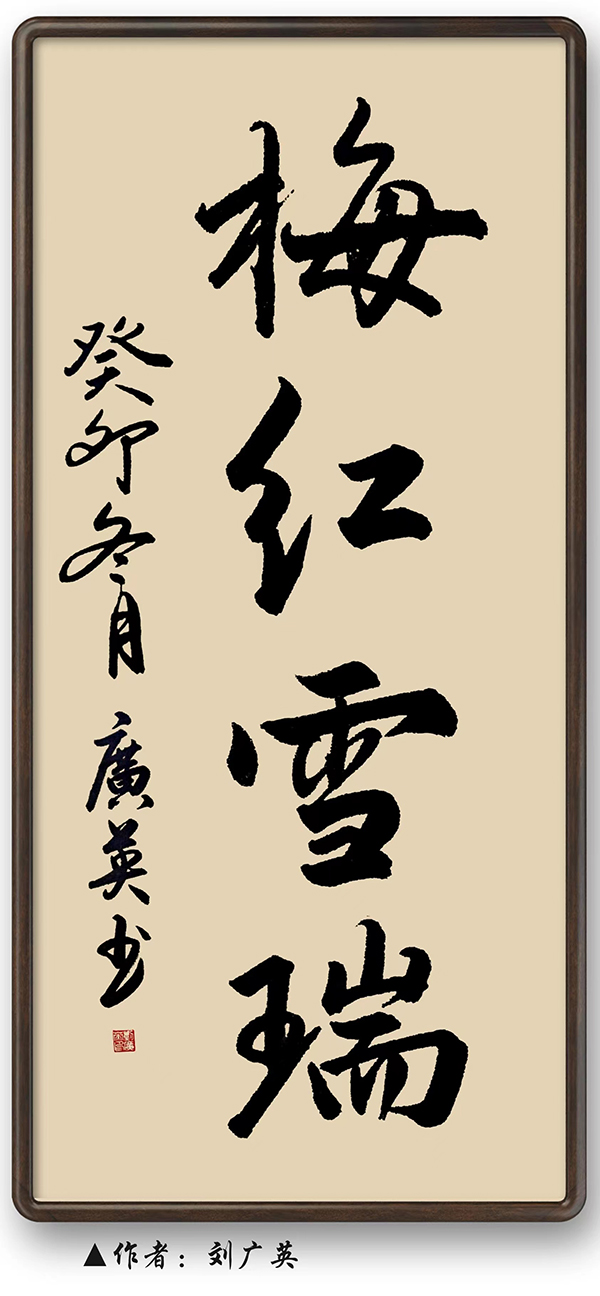 梅红雪瑞
癸卯冬月 廣英书
▲作者：刘广英